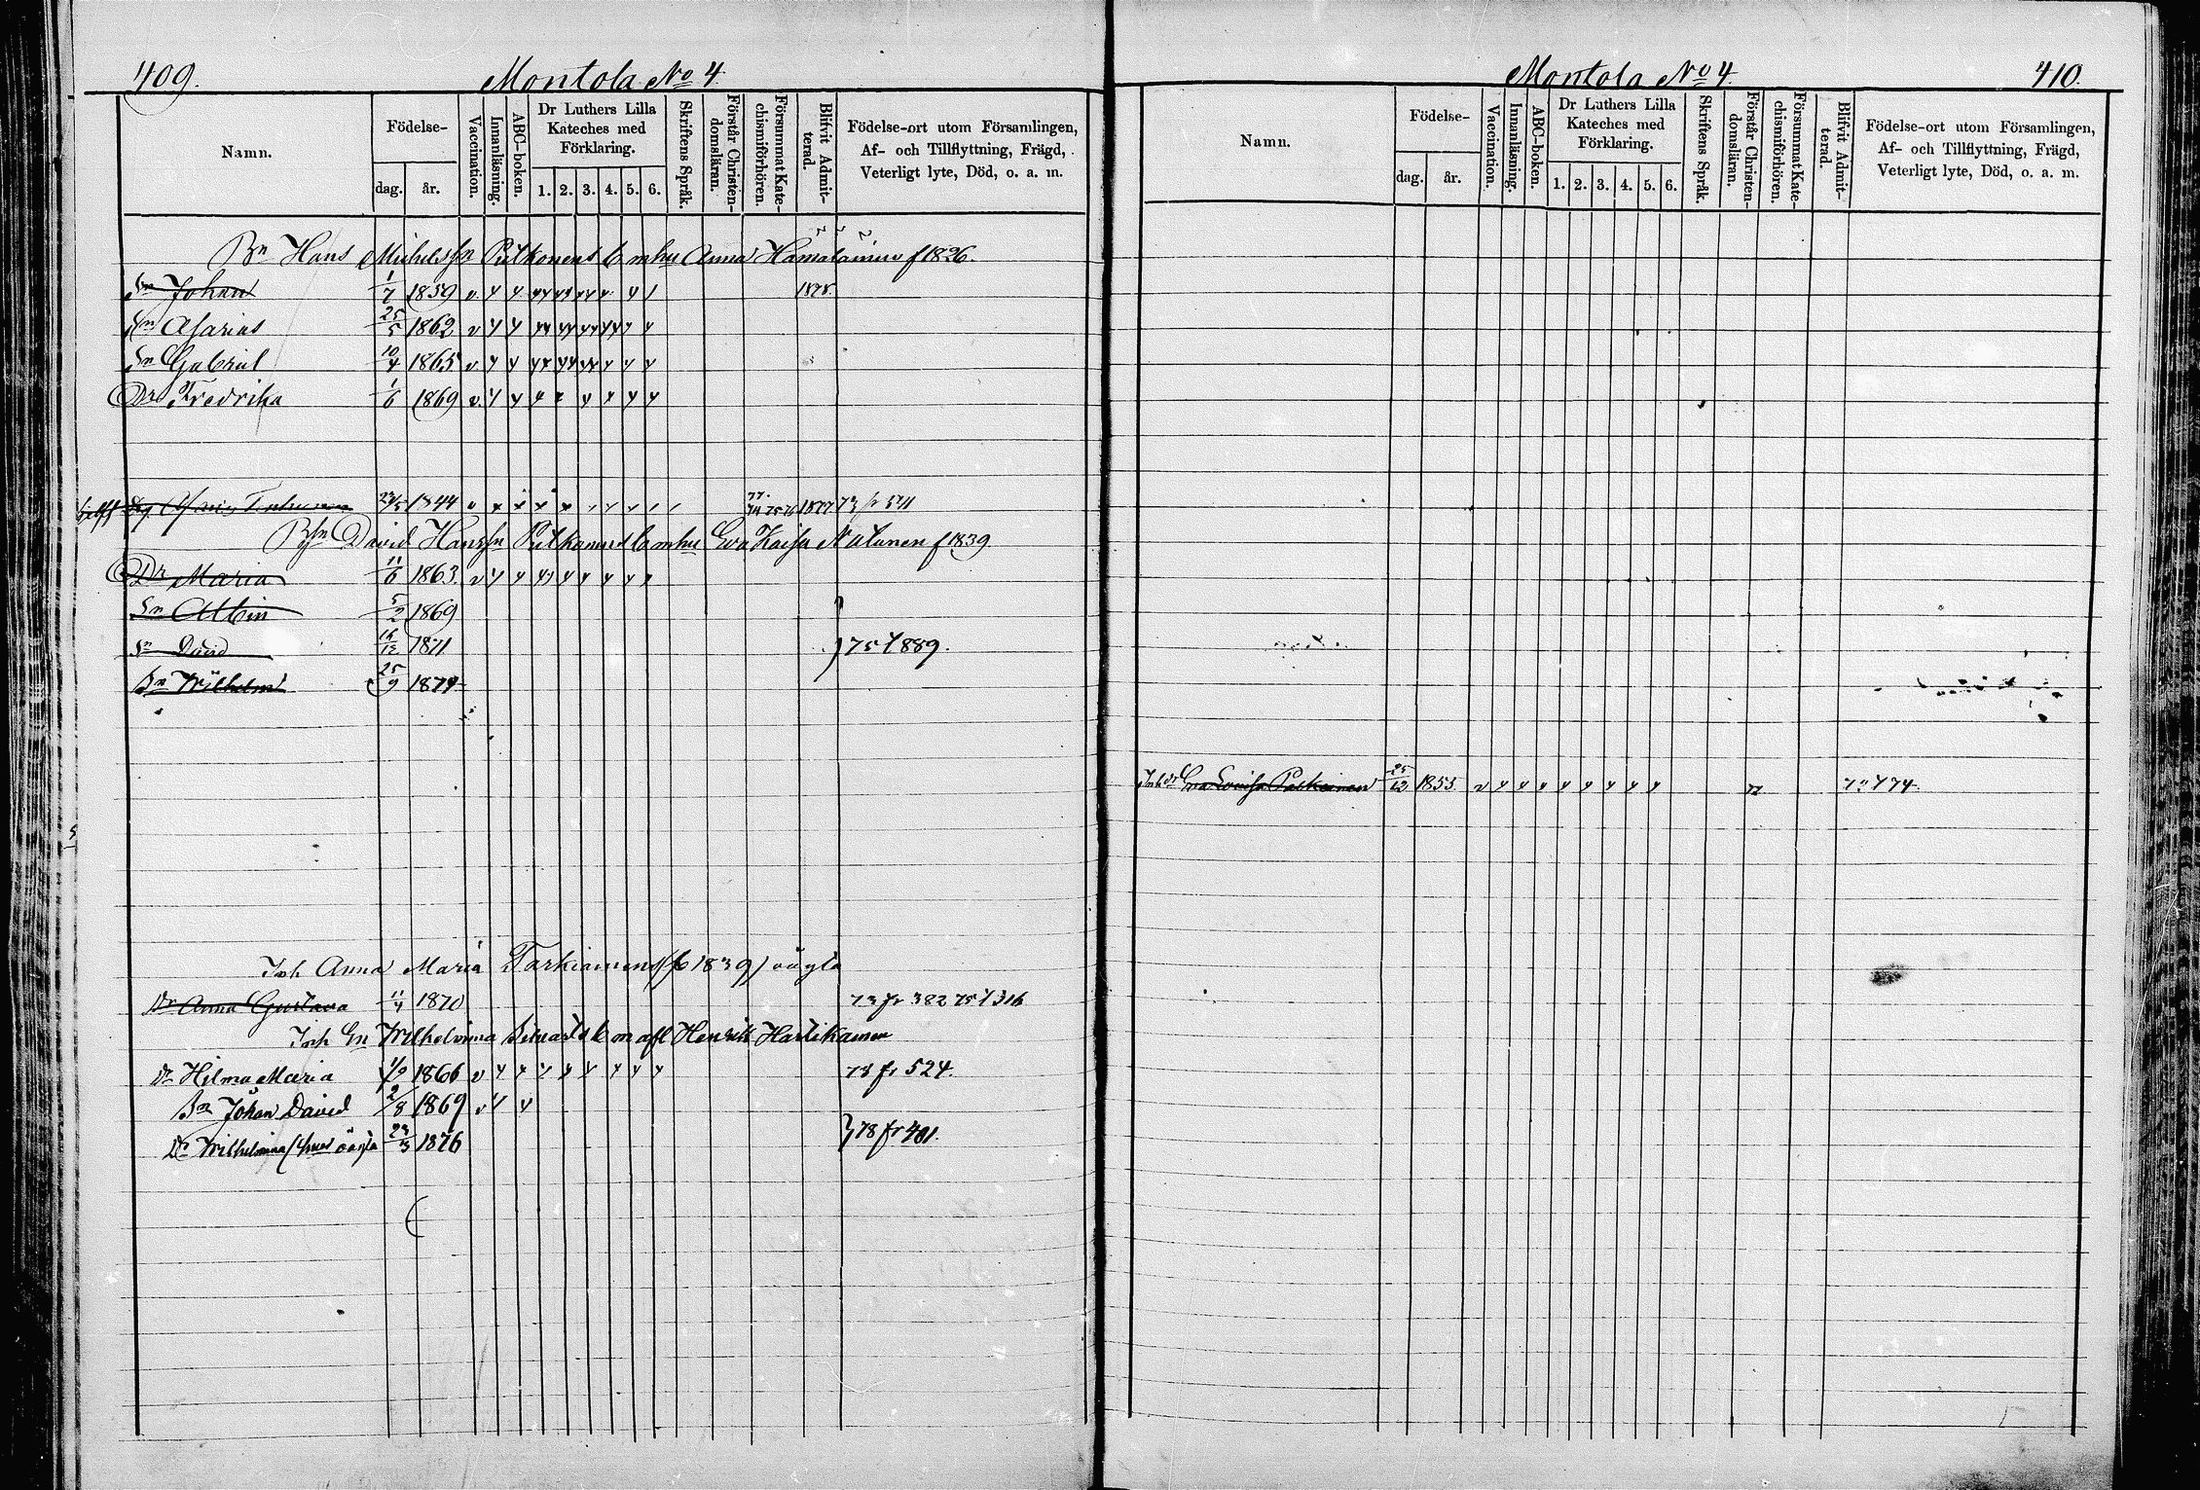 409.
Montola No 4.
Namn.
Födelse-
dag.
år.
Vaccination.
Innanläsning.
ABC-boken.
Dr Luthers Lilla
Kateches med
Förklaring.
1. 2. 3. 4. 5. 6.
Skriftens Språk.
Förstår Christen-
domsläran.
Försummat Kate-
chismiförhören.
Blifvit Admit-
terad.
Födelse-ort utom Församlingen,
Af- och Tillflyttning, Frägd,
Veterligt lyte, Död, o. a. m.
Bn Hans Michelsson Putkonens b mhu Anna Hämäläinen f 1826.
Sn Johan 1/7 1859 1875
Sn Asarias 25/5 1862
Sn Gabriel 10/4 1865
Dr Fredrika 1/6 1869
1844 1877 73 fr 541
David Hansson Putkonens b mhu Eva Kaisa f 1839
Dr Maria 11/6 1863
Sn Albin 5/2 1869
Sn David 1871 } 75 t 889.
Sn Wilhelm 25/9 1874
Inh Anna Maria Tarkiainens (f 1839) oägta
Dr Anna Gustava 11/4 1870 73 fr 382 75 t 316
Inh En Wilhelmina b m afl Henrik Hartikainen
Dr Hilma Maria 1866 78 fr 524.
Sn Johan David 2/8 1869
Dr Wilhelmina oägta 23/3 1876 } 78 fr 401.
Montola No 4
410.
Namn.
Födelse-
dag.
år.
Vaccination.
Innanläsning.
ABC-boken.
Dr Luthers Lilla
Kateches med
Förklaring.
1. 2. 3. 4. 5. 6.
Skriftens Språk.
Förstår Christen-
domsläran.
Försummat Kate-
chismiförhören.
Blifvit Admit-
terad.
Födelse-ort utom Församlingen,
Af- och Tillflyttning, Frägd,
Veterligt lyte, Död, o. a. m.
Eva Lovisa 25/12 1855